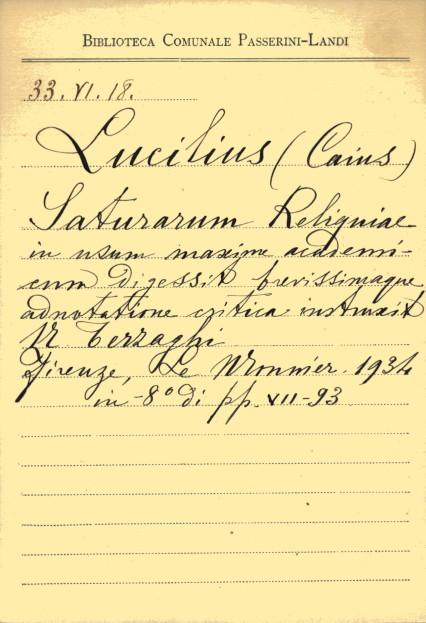 BIBLIOTECA COMUNALE PASSERINI-LANDI
33. VI. 18.
Lucilius (Caius)
Saturarum Reliquiae
in usum maxime academi-
cum digessit brevissimaque
adnotatione critica instruxit
N Terzaghi
Firenze, Le Monnier. 1934
in-8° di pp. VII-93